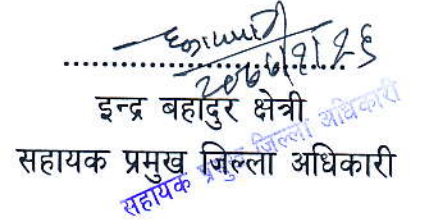 इन्द्र बहादुर क्षेत्री
सहायक प्रमुख जिल्ला अधिकारी
सहायक प्रमुख जिल्ला अधिकारी